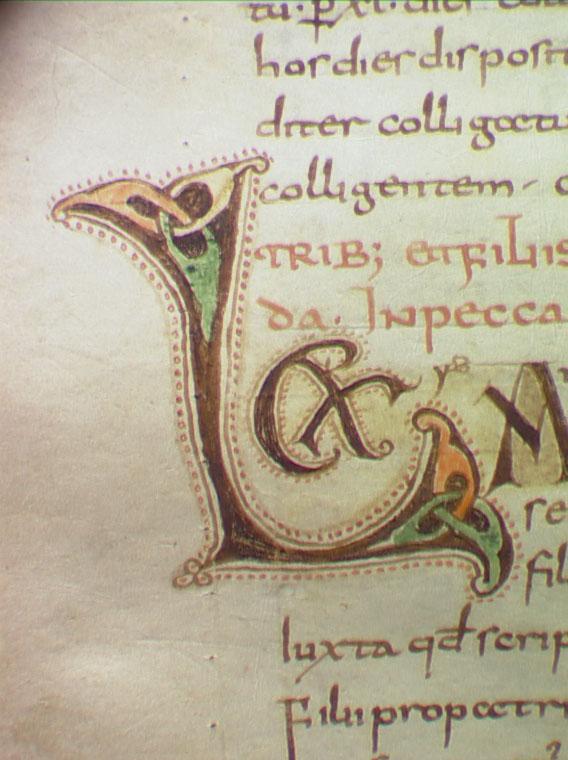 hos dies disposit
diter colligatu
colligentem · c
TRIB; et filiis
da. In pecca
Lex M
se
fil
luxta qđ scrip
Filii pro patri